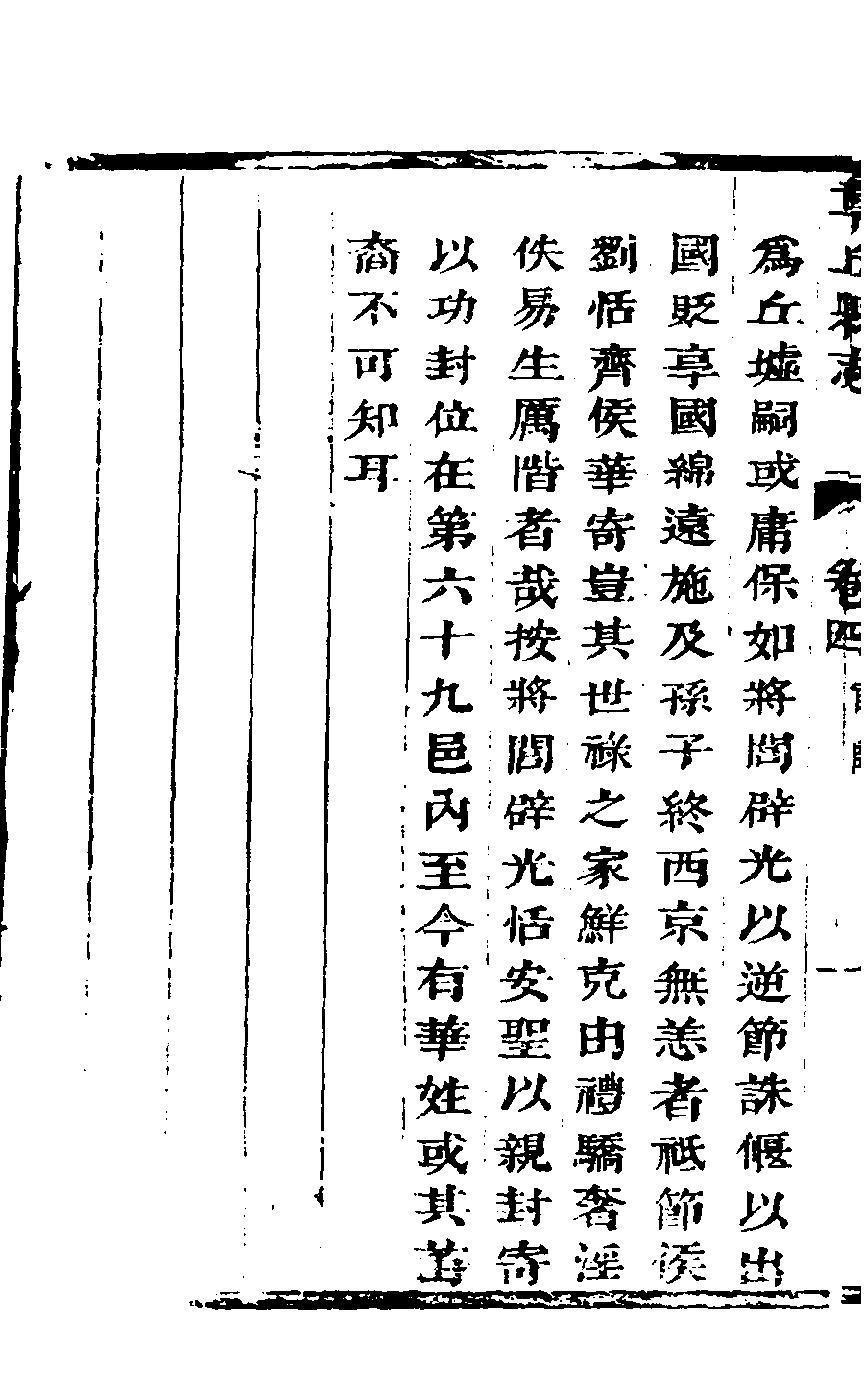 章丘縣志 卷四
為丘墟嗣或庸保如將閭辟光以逆節誅偃以出
國貶享國綿遠施及孫子終西京無恙者祗節侯
劉恬齊侯華寄豈其世祿之家鮮克由禮驕奢淫
佚易生厲階者哉按將閭辟光恬安聖以親封寄
以功封位在第六十九邑內至今有華姓或其苗
裔不可知耳